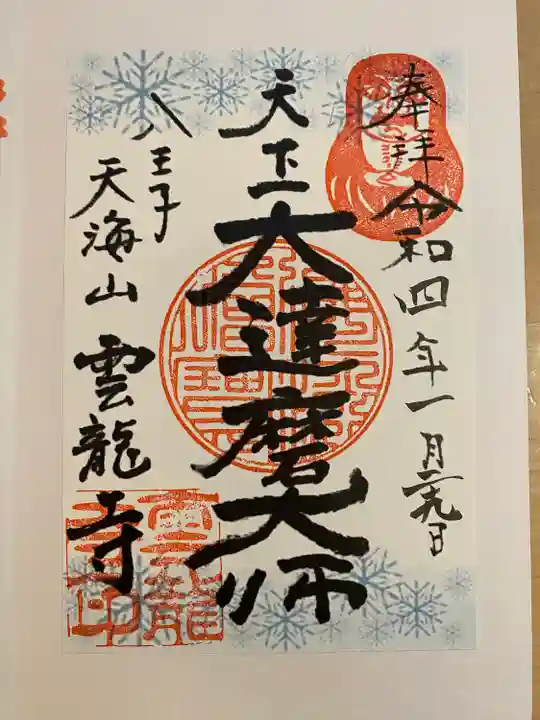 奉拝令和四年一月二九日
天下一大達磨大師
八王子
天海山雲龍寺
雲龍寺印